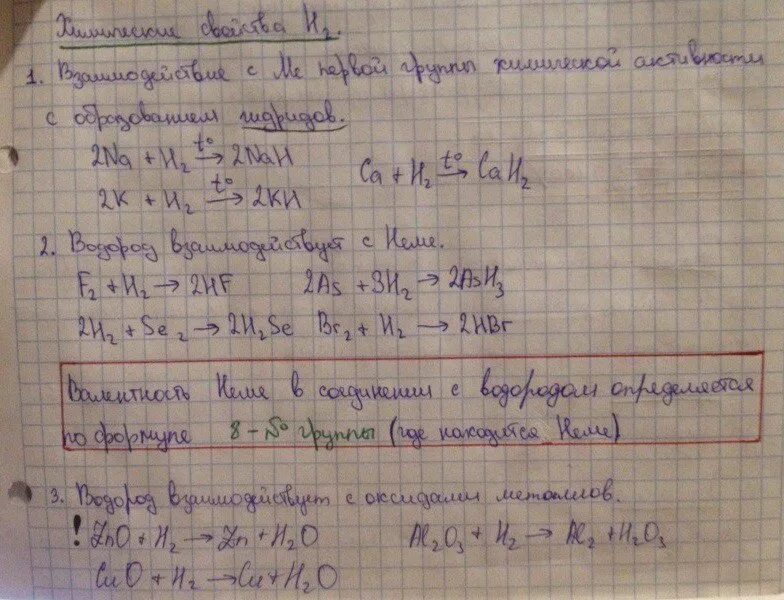 Химические свойства H₂.
1. Взаимодействие с Ме первой группы химической активности
с образованием гидридов.
2Na + H₂ t°→ 2NaH
Ca + H₂ t°→ CaH₂
2K + H₂ t°→ 2KH
2. Водород взаимодействует с Неме.
F₂ + H₂ → 2HF 2As + 3H₂ → 2AsH₃
2H₂ + Se₂ → 2H₂Se Br₂ + H₂ → 2HBr
Валентность Неме в соединении с водородом определяется
по формуле 8 - № группы (где находится Неме)
3. Водород взаимодействует с оксидами металлов.
! ZnO + H₂ → Zn + H₂O Al₂O₃ + H₂ → Al₂ + H₂O₃
CuO + H₂ → Cu + H₂O